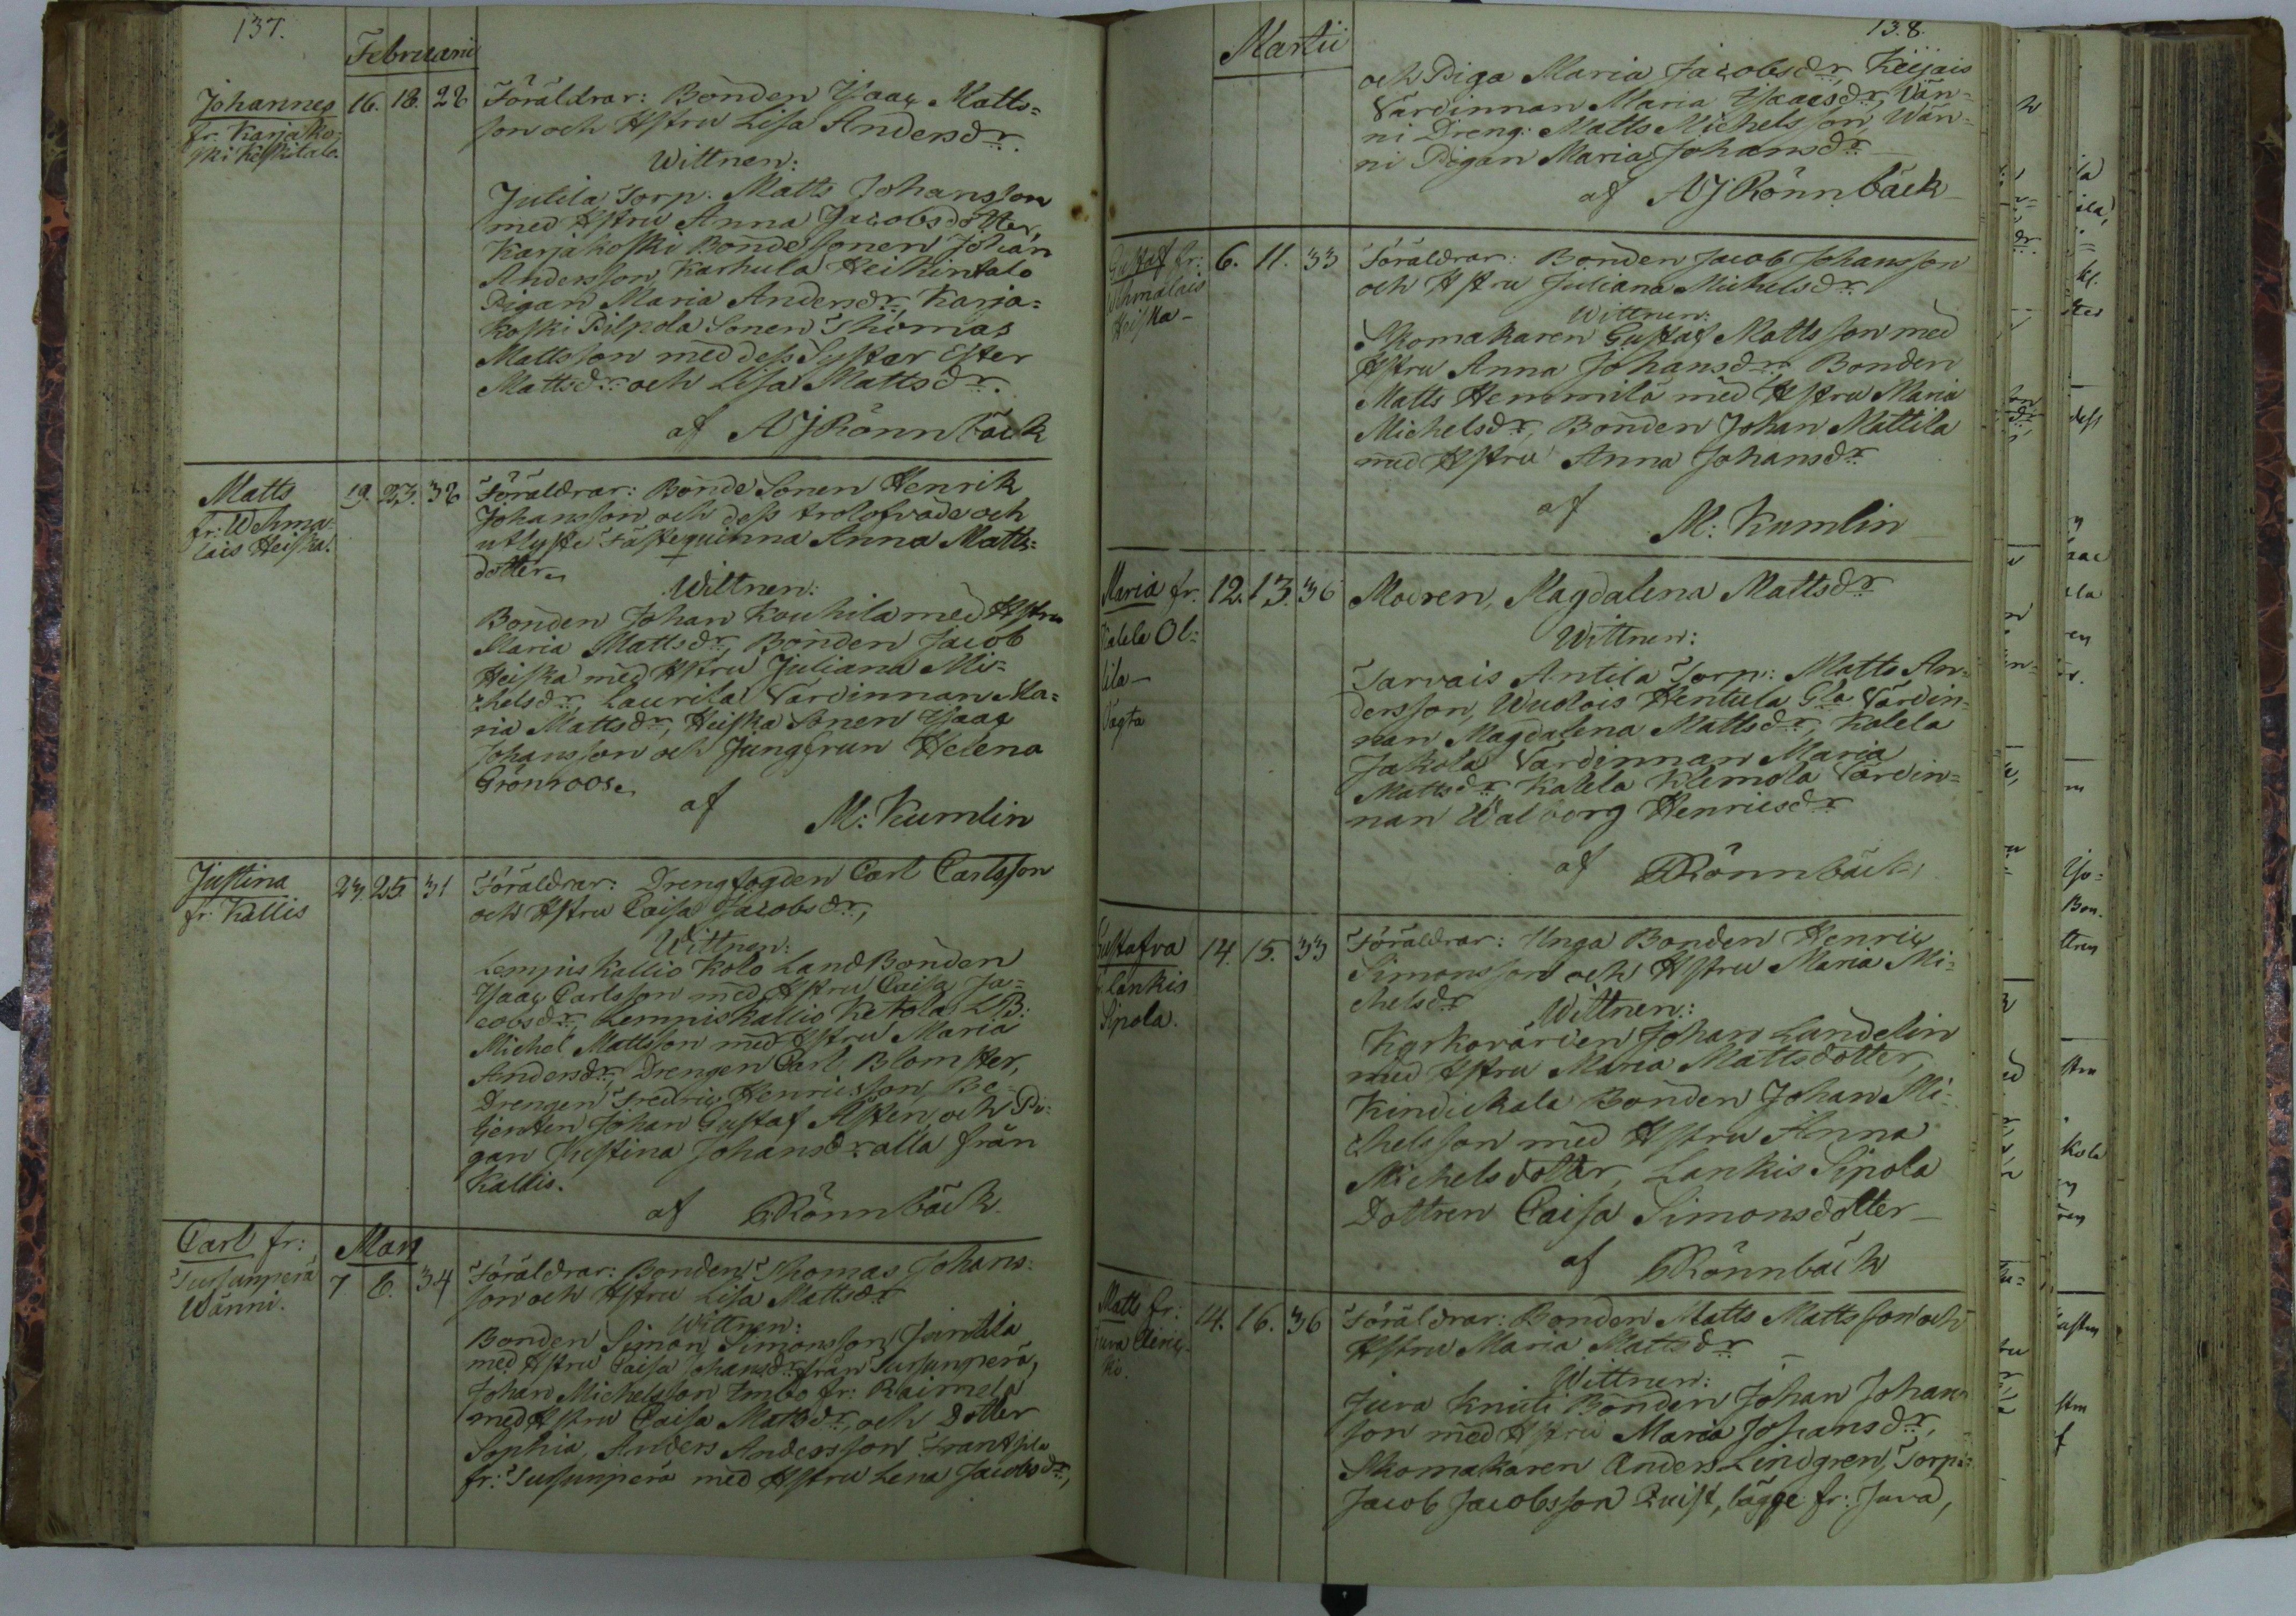 137.
Februarii
Johannes
fr. Karjako-
ski Keskitalo.
16. 18. 28
Föräldrar: Bonden Isaac Matts=
son och Hstru Lisa Andersdr.
Wittnen:
Jutila Torp. Matts Johansson
med Hstru Anna Jacobsdotter,
Karjakoski Bondesonen Johan
Andersson, Karhula Heikintalo
Pigan Maria Andersdr, Karja=
koski Pilpola Sonen Thomas
Mattsson med dess Syster Ester
Mattsdr. och Lisa Mattsdr.
af AJRönnbäck
Matts
fr: Wehma-
lais Heiska.
19. 23. 38
Föräldrar: Bonde Sonen Henrik
Johansson och dess trolofvade och
utlyste Fästequinna Anna Matts=
dotter
Wittnen:
Bonden Johan Kouhila med Hstru
Maria Mattsdr, Bonden Jacob
Heiska med Hstru Juliana Mi=
chelsdr, Laurila Värdinnan Ma=
ria Mattsdr, Heiska Sonen Isaac
Johansson och Jungfrun Helena
Grönroos.
af M: Kumlin
Justina
fr. Kallis
23. 25. 31
Föräldrar: Drengfogden Carl Carlsson
och Hstru Caisa Jacobsdr,
Wittnen:
Lempis Kallio Kolo LandBonden
Isaac Carlsson med Hstru Caisa Ja=
cobsdr, Lempis Kallio Ketola LB:
Michel Mattsson med Hstru Maria
Andersdr, Drengen Carl Blomster,
Drengen Fredric Henricsson, Be=
tjenten Johan Gustaf Åsten, och Pi=
gan Justina Johansdr alla från
Kallis.
af Rönnbäck
Carl fr:
Tursunperä
Wänni.
Mars
7 8. 34
Föräldrar: Bonden Thomas Johans=
son och Hstru Lisa Mattsdr
Wittnen:
Bonden Simon Simonsson Juntila
med Hstru Caisa Johansdr från Tursunperä,
Johan Michelsson Imbo fr: Raimela
med Hstru Caisa Mattsdr, och Dotter
Sophia, Anders Andersson Frantsila
fr: Tursunperä med Hstru Lena Jacobsdr,
138.
Martii
och Piga Maria Jacobsdr, Keijais
Värdinnan Maria Isaacsdr, Wän=
ni Dreng: Matts Michelsson, Wän=
ni Pigan Maria Johansdr
af AJRönnbäck
Gustaf fr:
Wehmalais
Heiska
6. 11. 33
Föräldrar: Bonden Jacob Johansson
och Hstru Juliana Michelsdr
Wittnen:
Skomakaren Gustaf Mattsson med
Hstru Anna Johansdr, Bonden
Matts Hemmilä med Hstru Maria
Michelsdr, Bonden Johan Mattila
med Hstru Anna Johansdr
af M: Kumlin
Maria fr.
Kalela Ol=
lila
12. 13. 36
Modren, Magdalena Mattsdr
Wittnen:
Tarvais Antila Torp: Matts An=
dersson, Wuolois Hentula Gla Värdin=
nan Magdalena Mattsdr, Kalela
Jakola Värdinnan Maria
Mattsdr Kalela Klemola Värdin=
nan Walborg Henricsdr
af Rönnbäck
Gustafva
Lankis
Sipola.
14. 15. 33
Föräldrar: Unga Bonden Henric
Simonsson och Hstru Maria Mi=
chelsdr
Wittnen:
Kyrkovärden Johan Landelin
med Hstru Maria Mattsdotter,
Kindickala Bonden Johan Mi=
chelsson med Hstru Anna
Michelsdotter, Lankis Sipola
Dottren Caisa Simonsdotter
af Rönnbäck
Matts fr:
14. 16. 36
Föräldrar: Bonden Matts Mattsson och
Hstru Maria Mattsdr
Wittnen:
Juva Knuti Bonden Johan Johans
son med Hstru Maria Johansdr,
Skomakaren Anders Lindgren, Torp:
Jacob Jacobsson Quist, bägge fr: Juva,